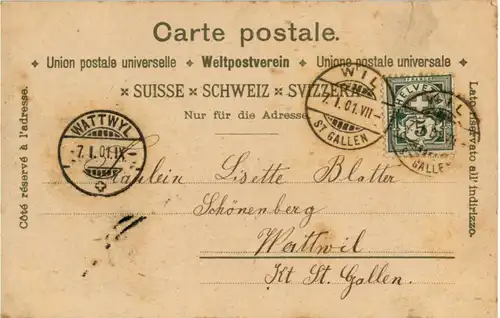 Carte postale.
Union postale universelle ✦ Weltpostverein ✦ Unione postale universale
SUISSE × SCHWEIZ × SVIZZERA
Nur für die Adresse
Côté réservé à l'adresse.
Lato riservato all' indirizzo.
WIL
7. I. 01. VII
ST GALLEN
HELVETIA
FRANCO
5
GALLEN
WATTWYL
7. I. 01. IX
Fräulein Lisette Blatter
Schönenberg
Wattwil
Kt St. Gallen.